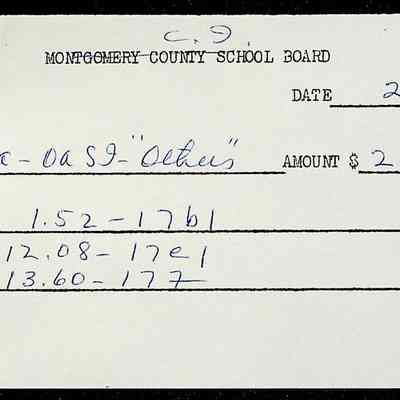 C.I.
MONTGOMERY COUNTY SCHOOL BOARD
DATE 2
- OASI - "Other" AMOUNT $ 2
1.52 - 17b1
12.08 - 17e1
13.60 - 177